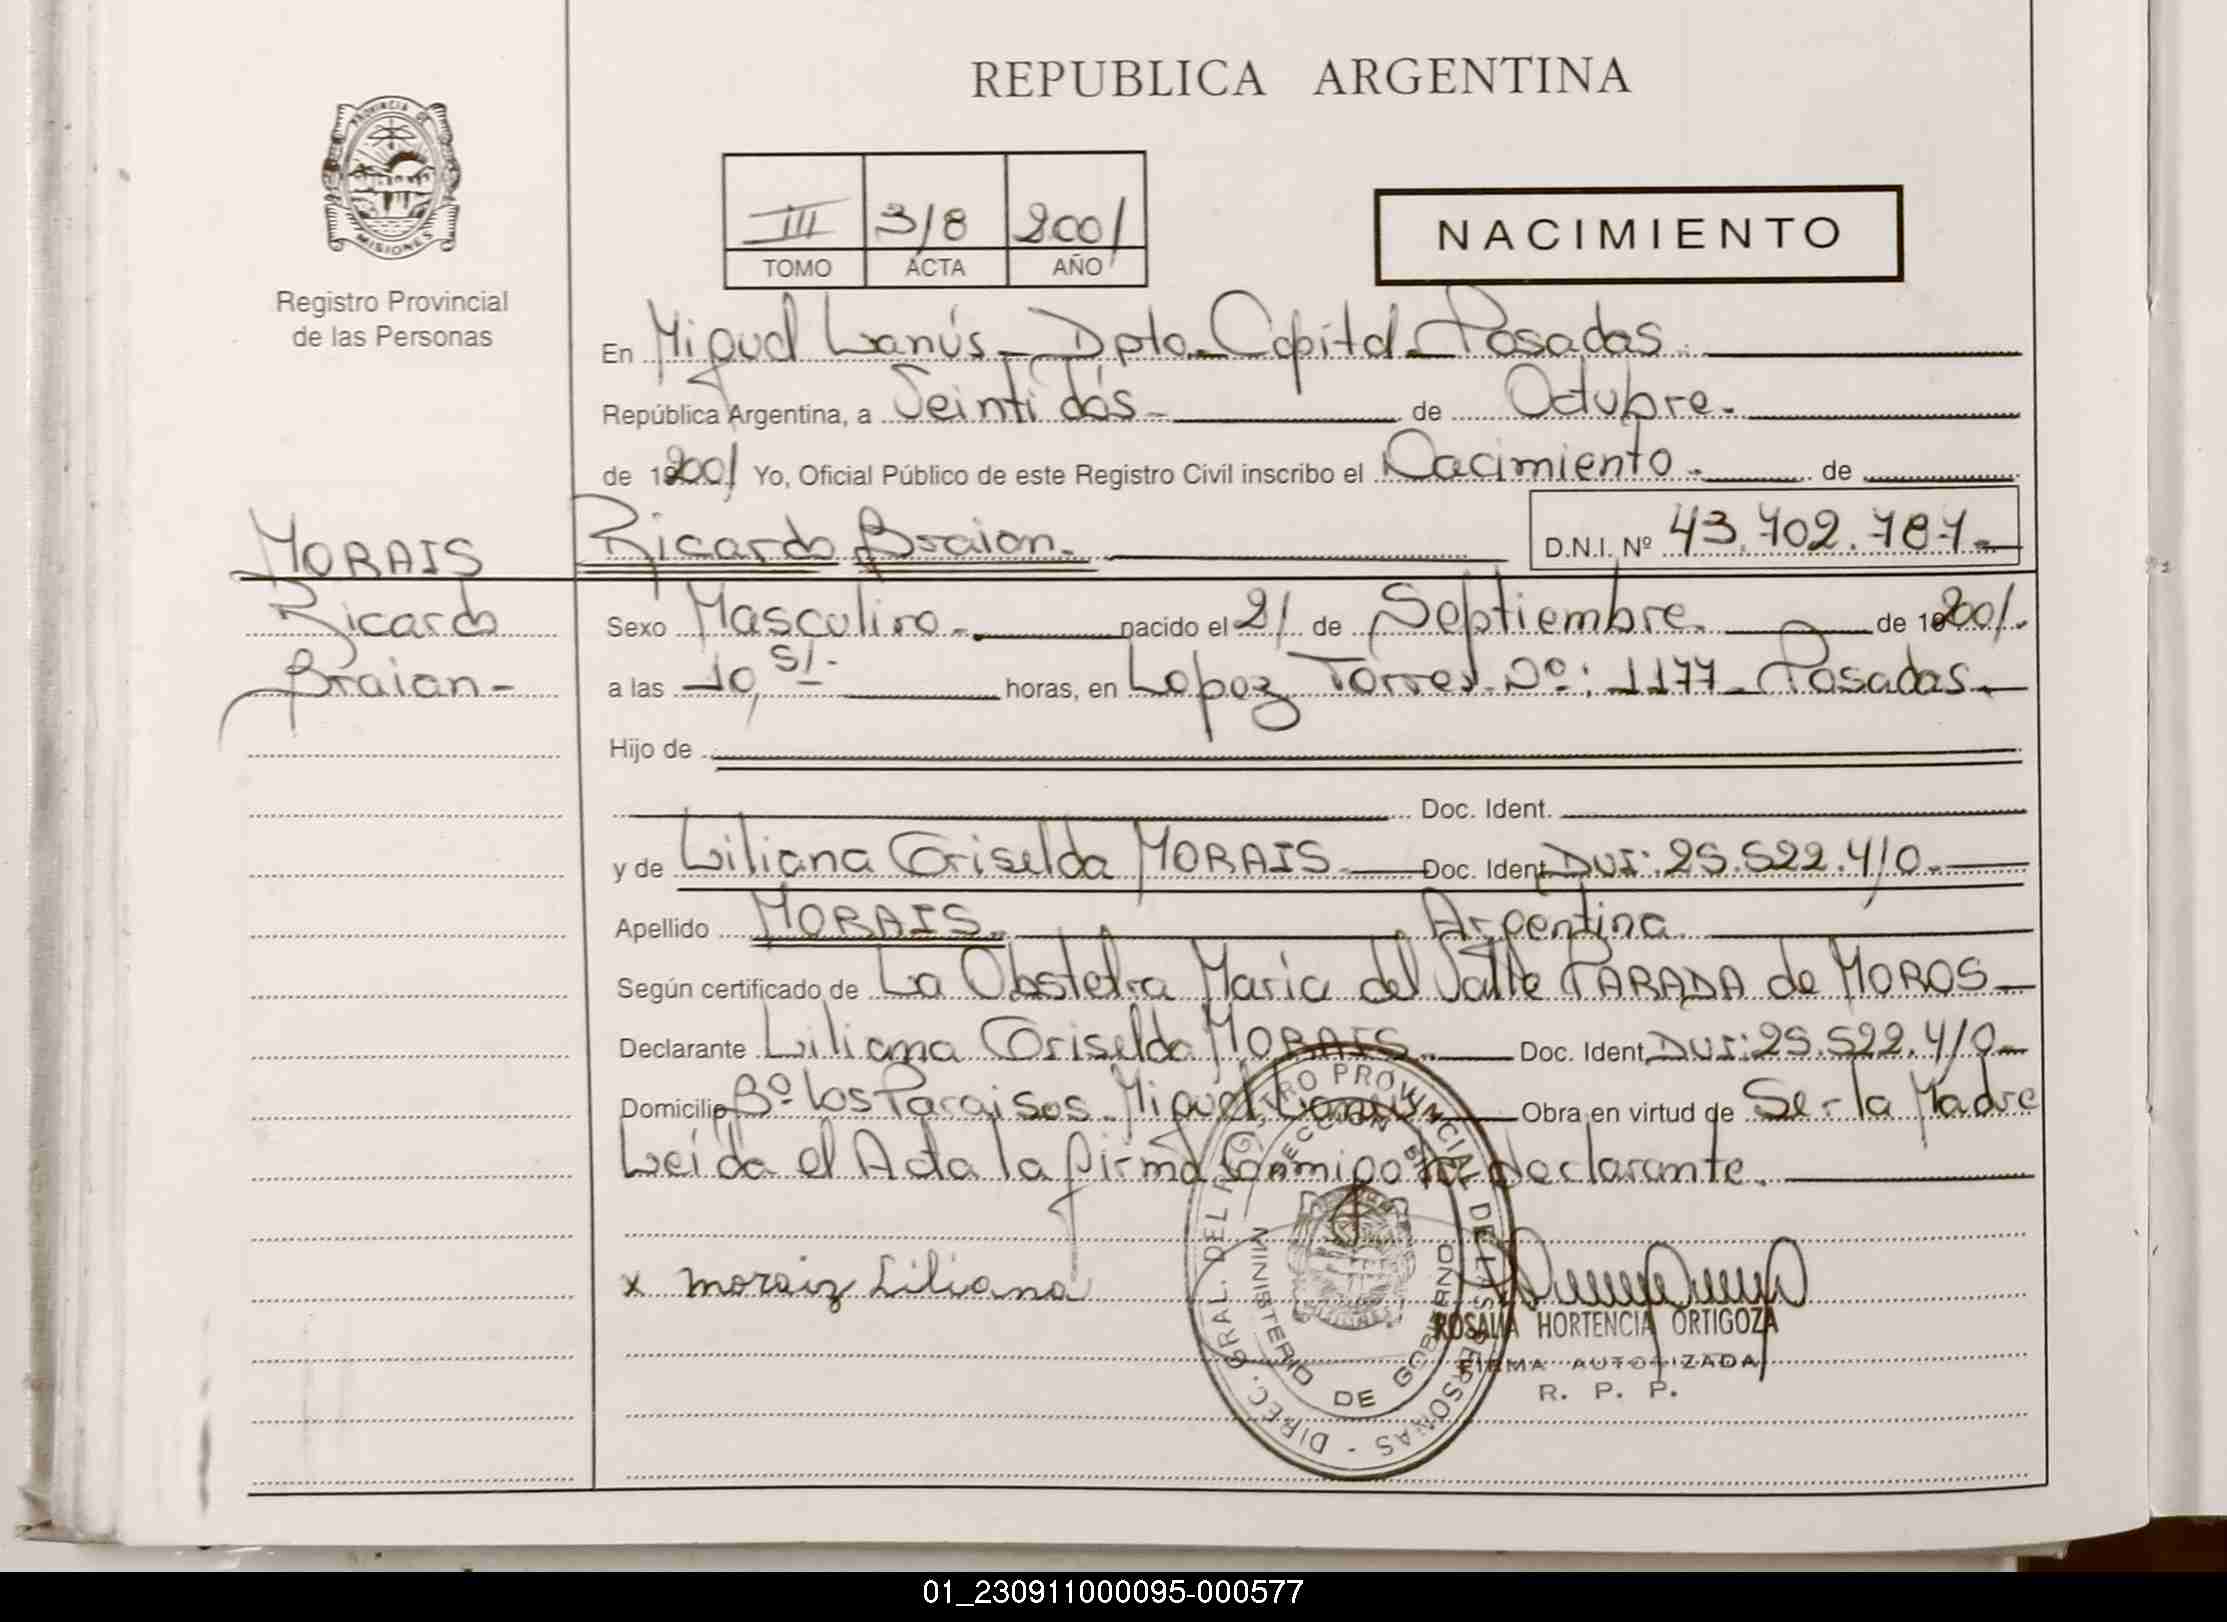 REPUBLICA ARGENTINA
PROVINCIA DE MISIONES
Registro Provincial
de las Personas
III 318 2001
TOMO ACTA AÑO
NACIMIENTO
En Miguel Lanús - Dpto. Capital - Posadas.
República Argentina, a Veintidós - de Octubre.
de 2001 Yo, Oficial Público de este Registro Civil inscribo el Nacimiento - de
MORAIS
Ricardo
Braian -
Ricardo Braian - D.N.I. Nº 43.702.787 -
Sexo Masculino - nacido el 21 de Septiembre. de 2001.
a las 10,51 - horas, en Lopez Torres Nº: 1177 - Posadas -
Hijo de
Doc. Ident.
y de Liliana Griselda MORAIS - Doc. Ident. DNI: 25.522.410 -
Apellido MORAIS - Argentina
Según certificado de La Obstetra Maria del Valle PARADA de MOROS -
Declarante Liliana Griselda MORAIS - Doc. Ident. DNI: 25.522.410 -
Domicilio Bº los Paraisos - Miguel Lanús - Obra en virtud de Ser la Madre
Leida el Acta la firma conmigo la declarante.
x moraiz Liliana
DIREC. GRAL. DEL REGISTRO PROVINCIAL DE LAS PERSONAS -
MINISTERIO DE GOBIERNO
ROSALIA HORTENCIA ORTIGOZA
FIRMA AUTORIZADA
R. P. P.
01_230911000095-000577